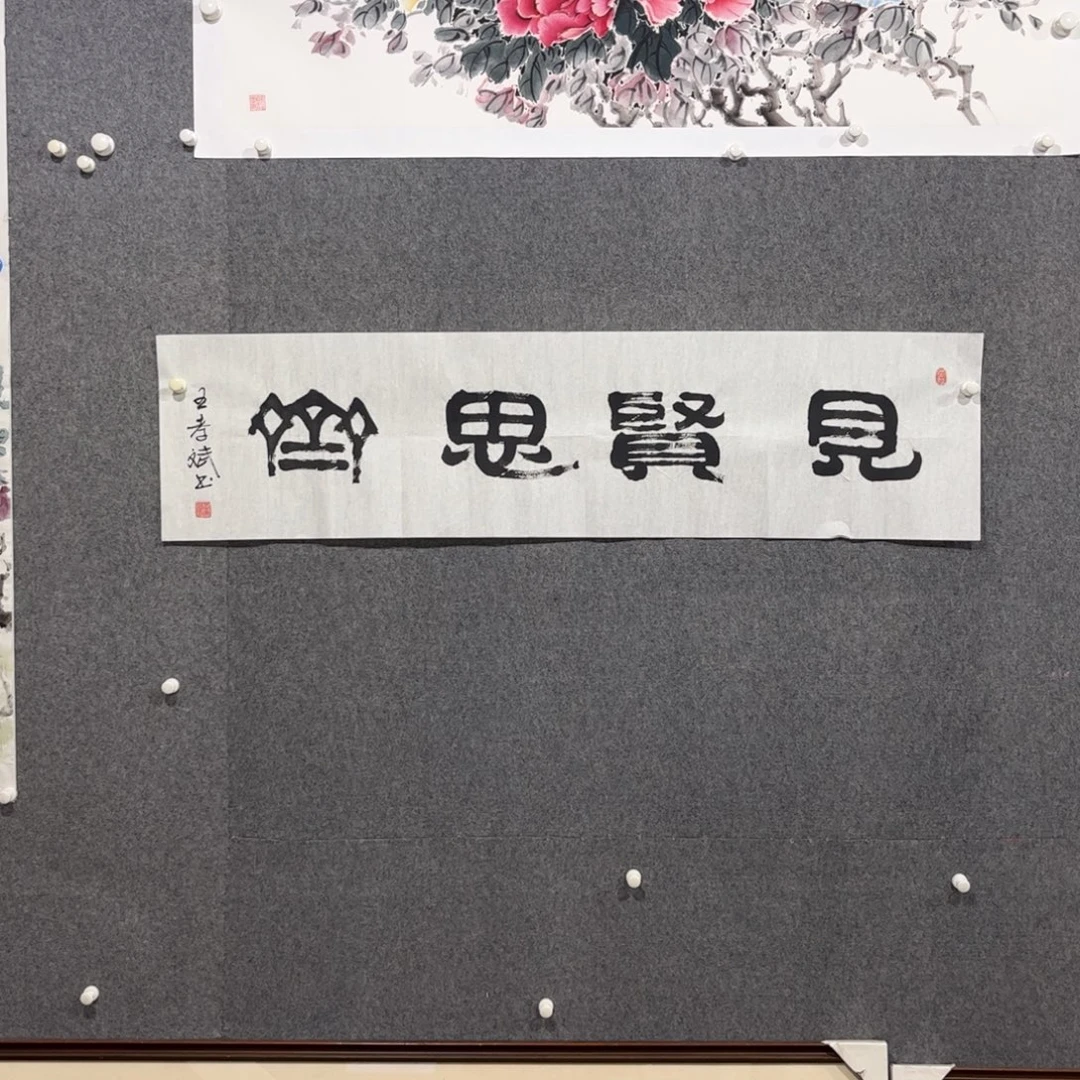 見賢思齊
王孝斌书